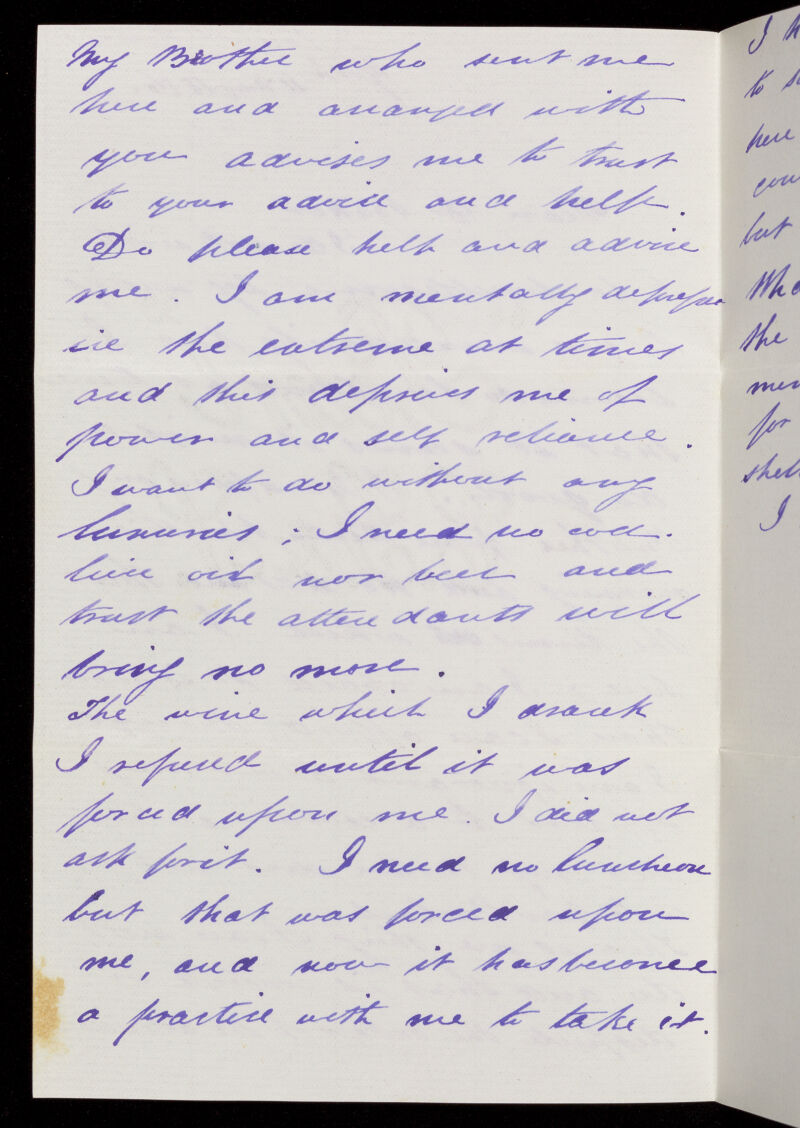 My Brother who sent me
here and arranged with
you advises me to trust
to your advice and help.
Do please help and advise
me. I am mentally depressed
in the extreme at times
and this deprives me of
power and self reliance.
I want to do without any
luxuries; I need no cod.
liver oil nor beer and
trust the attendants will
bring no more.
The wine which I drank
I refused until it was
forced upon me. I did not
ask for it. I need no luncheon
but that was forced upon
me, and now it has become
a practice with me to take it.
I
to
here
but
the
for
I